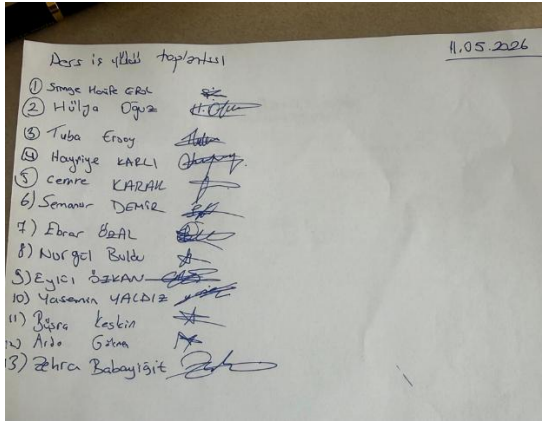 Ders iş yükü toplantısı
11.05.2026
1 Simge Hatife EROL
2 Hülya Oğuz
3 Tuba Ersoy
4 Hayriye KARLI
5 Cemre KARAK
6) Semanur DEMİR
7) Ebrar ÖZAL
8) Nurgül Buldu
9) ÖZKAN
10) Yasemin YALDIZ
11) Büşra Keskin
12) Arda
13) Zehra Babayiğit